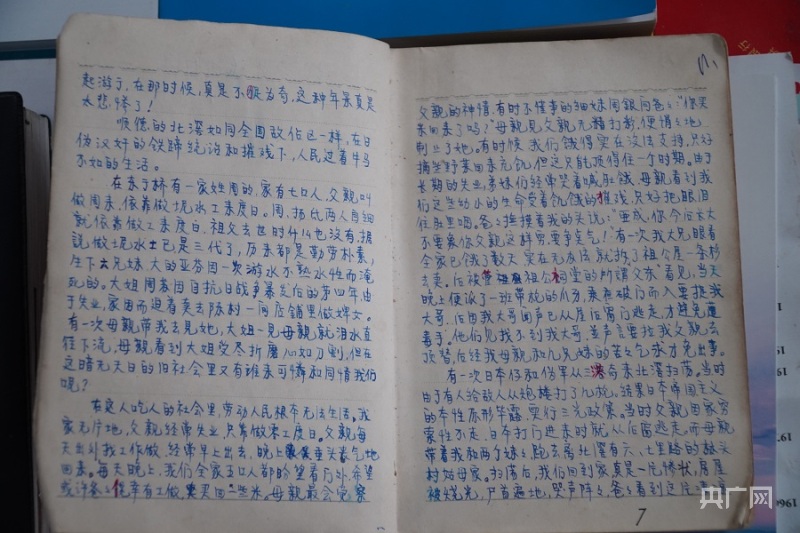 起游了,在那时候,真是不足为奇,这种年景真是
太悲惨了!
顺德的北滘如同全国敌伪区一样,在日
伪汉奸的铁蹄统治和摧残下,人民过着牛马
不如的生活。
有一家姓周的,家有七口人,父亲叫
做周来,依靠做坭水工来度日。周
就依靠做工来度日,祖父去世时什么也没有,据
说做坭水土已是三代了,历来都是勤劳朴素,
生下六兄妹,大的亚芬因一次游水不熟水性而淹
死的。大姐周者因日抗日战争暴发后的第四年,由
于失业,家困而迫着卖去陈村一间店铺里做婢女。
有一次母亲带我去见她,大姐一见母亲就泪水直
往下流,母亲看到大姐受尽折磨心如刀割,但在
这暗无天日的旧社会里又有谁来可怜和同情我们
呢?
在这人吃人的社会里,劳动人民根本无法生活。我
家无片地,父亲经常失业,只靠做零工度日。父亲每
天出外找工作做,经常早上出去,晚上垂头丧气地
回来。每天晚上,我们全家五口人都盼望着门外,希望
或许爸爸侥幸有工做,买回一些米。母亲最会观察
父亲的神情,有时不懂事的细妹周银问爸爸:“你买
米回来了吗?”母亲见父亲无精打彩,便悄悄地
制止了她。有时候,我们饿得实在没法支持,只好
摘些野菜回来充饥,但这只能抵得住一个时期。由于
长期的失业,弟妹们经常哭着喊肚饿,母亲看到我
们这些幼小的生命受着饥饿的摧残,只好把眼泪
往肚里咽。爸爸抚摸着我的头说:“要成,你今后长大
不要象你父亲这样穷,要争气!”有一次我大兄眼看
全家已饿了数天,实在无办法,就拆了祖公屋一条杉
去卖。后被祖公祠堂的所谓父老看见,当天
晚上便派了一班带枪的爪牙,来破门而入要捉我
大哥,后由我大哥闻声已从屋后窗门逃走,才避免遭
毒手。他们见找不到我大哥,并声言要拉我父亲去
顶替,后经我母亲和几兄妹的苦苦乞求才免出事。
有一次日本仔和伪军从三洪奇来北滘扫荡。当时
由于有人给敌人从炮楼打了几枪,结果日本帝国主义
的本性原形毕露,实行三光政策。当时父亲因家穷
索性不走,日本打门进来时就从后窗逃走,而母亲
带着我和两个妹妹跑去离北滘有六、七里路的
村姑母家。扫荡后,我们回到家真是一片惨状,房屋
被烧光,尸首遍地,哭声阵阵,爸爸看到这片
7
央广网